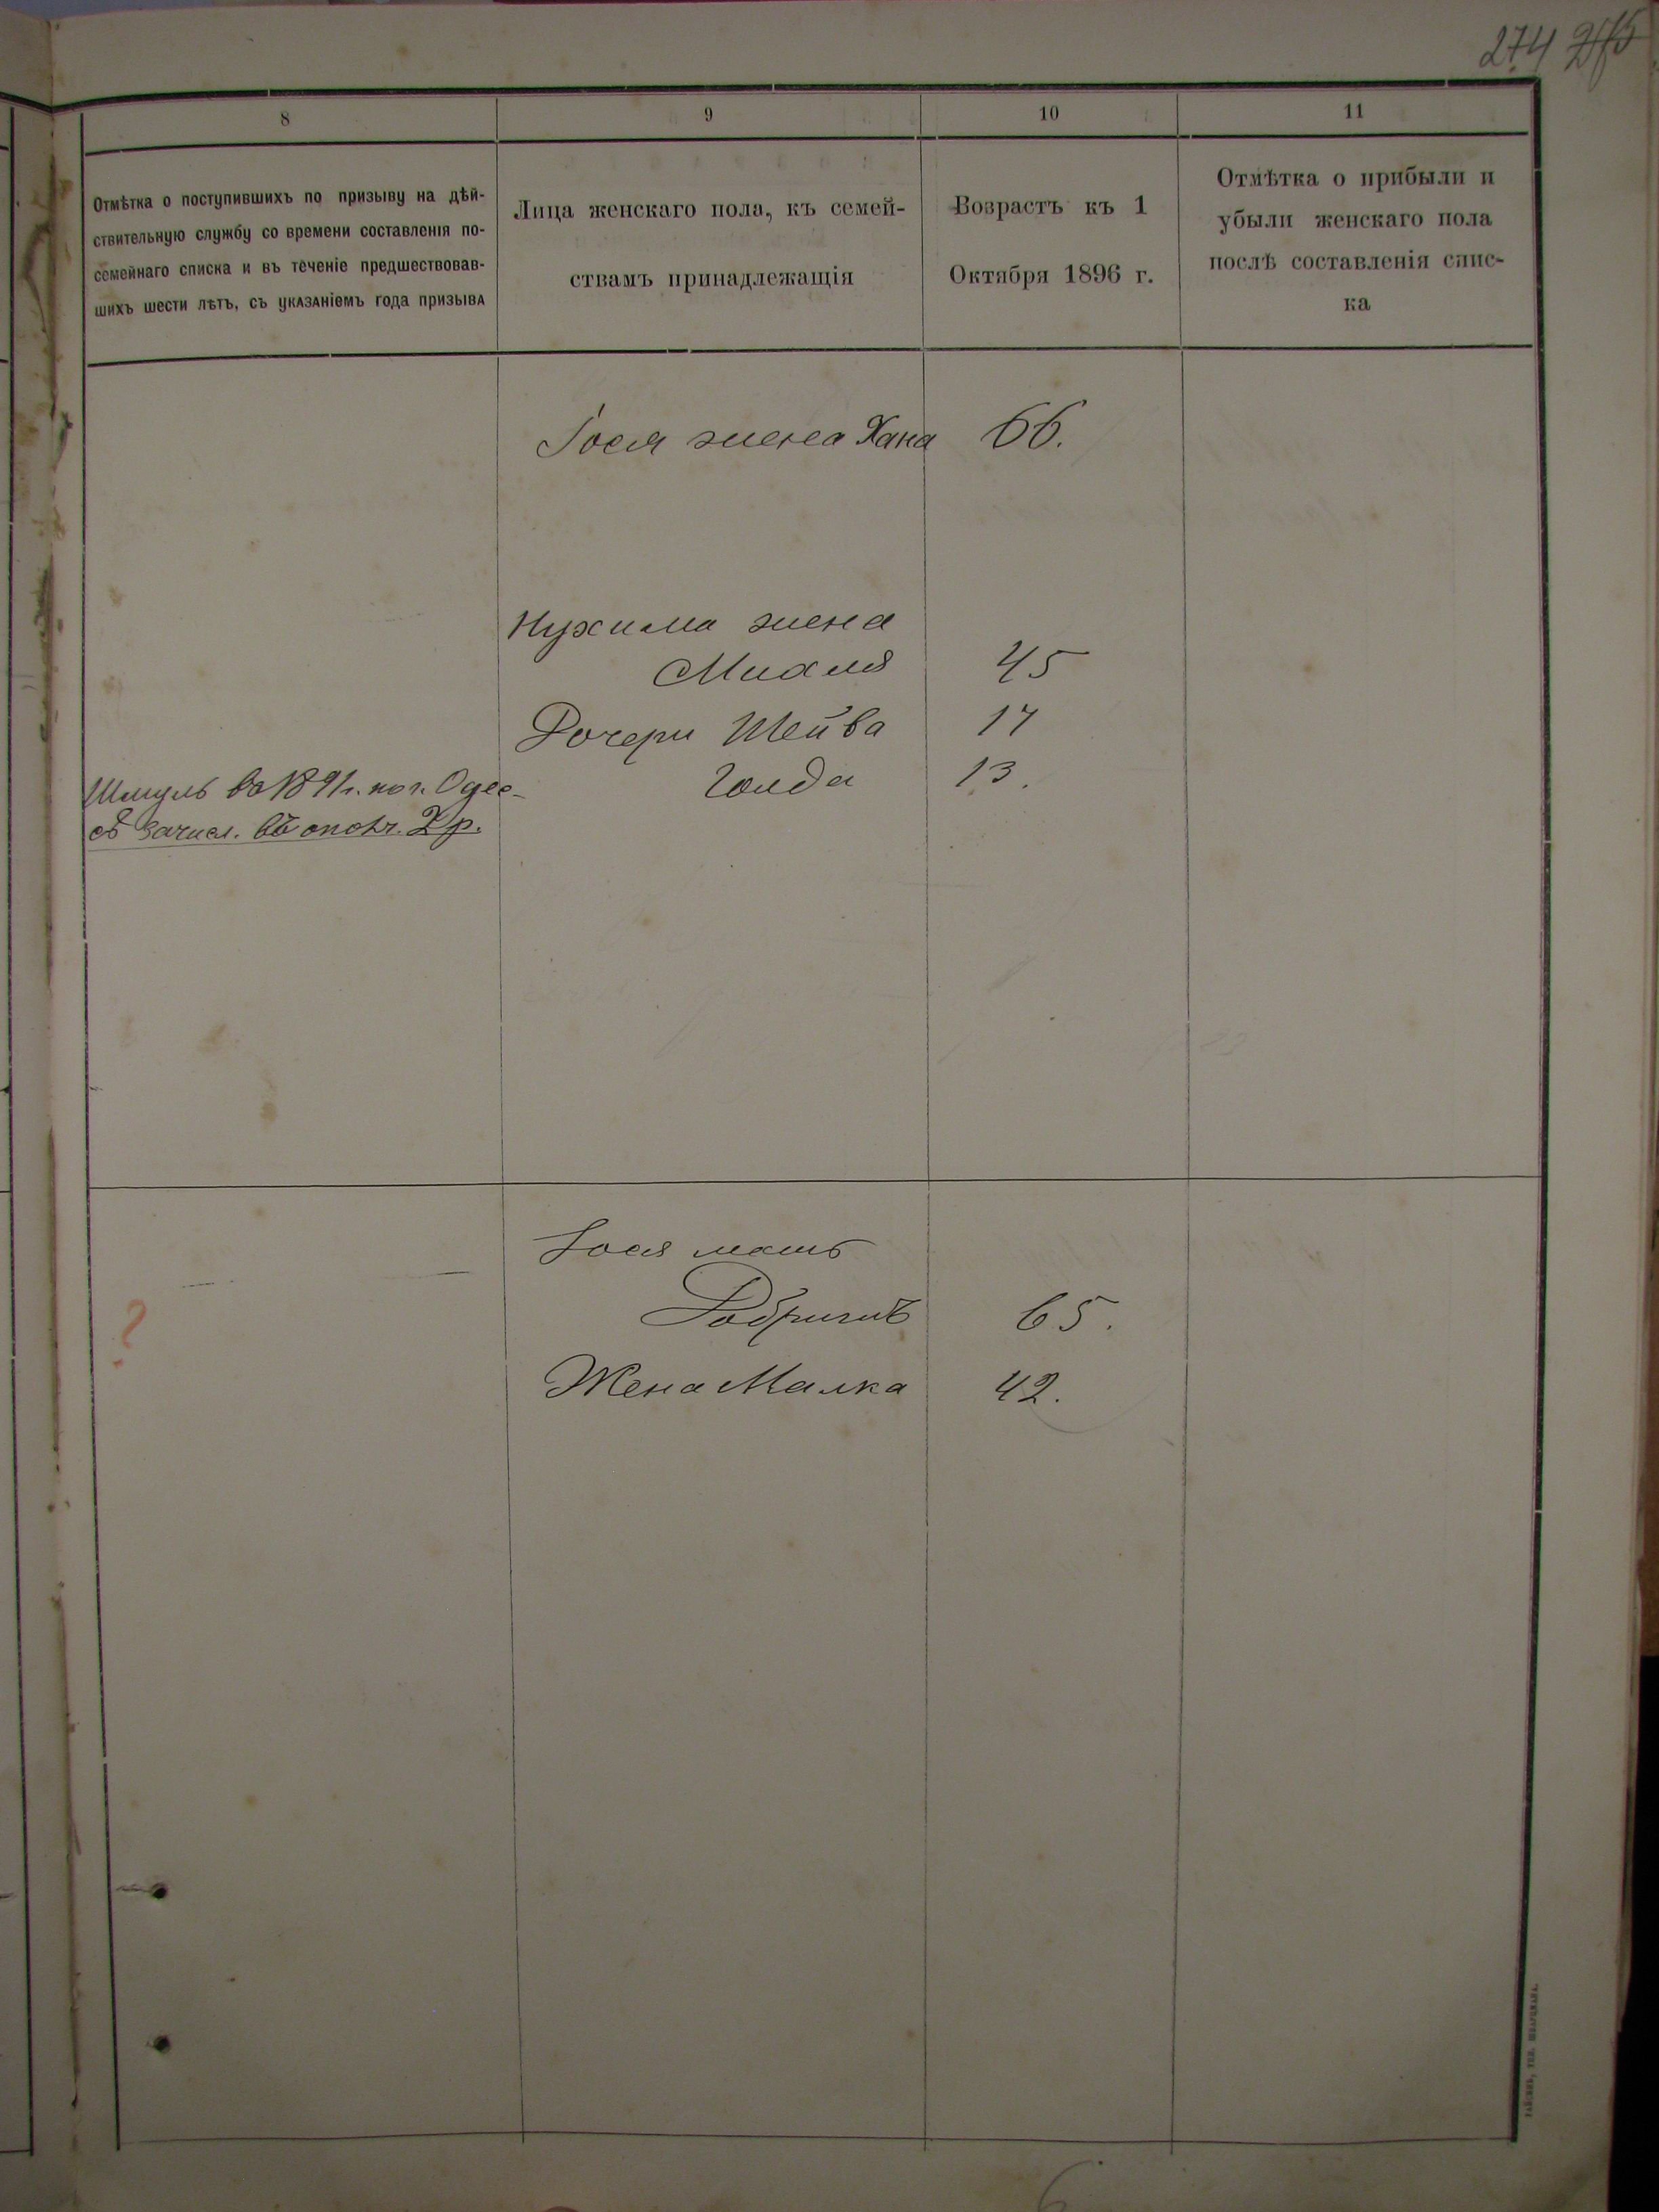 274
8
9
10
11
Отмѣтка о поступившихъ по призыву на дѣй-
ствительную службу со времени составленія по-
семейнаго списка и въ теченіе предшествовав-
шихъ шести лѣтъ, съ указаніемъ года призыва
Лица женскаго пола, къ семей-
ствамъ принадлежащія
Возрастъ къ 1
Октября 1896 г.
Отмѣтка о прибыли и
убыли женскаго пола
послѣ составленія спис-
ка
Іося жена Хана 66.
Нухима жена
Михля 45
Дочери Шейва 17
Голда 13.
Шмуль въ 1891 г. по г. Одес-
сѣ зачисл. въ ополч. 2 р.
Іося мать
65.
Жена Малка 42.